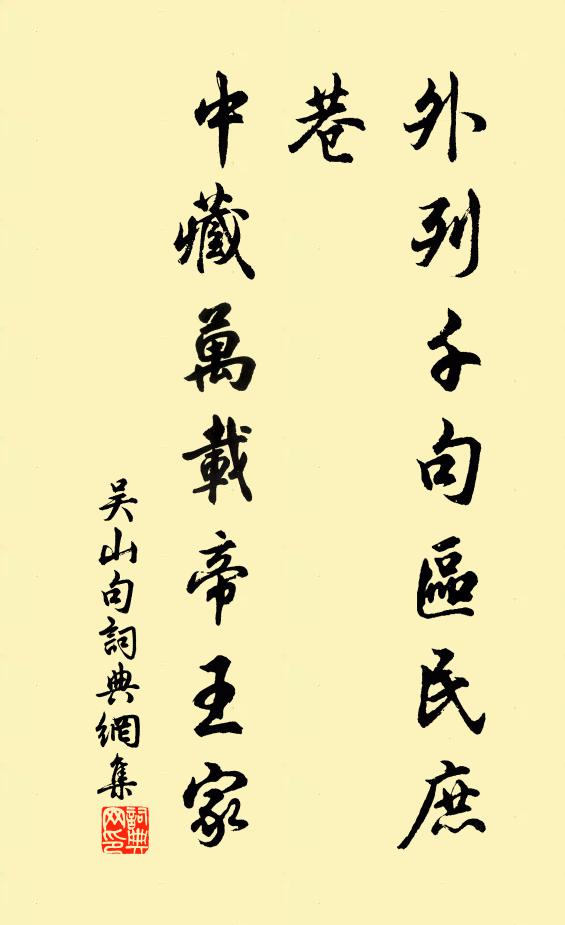 外列千句區民庶
巷
中藏萬載帝王家
吳山句詞典網集
詞典
网印